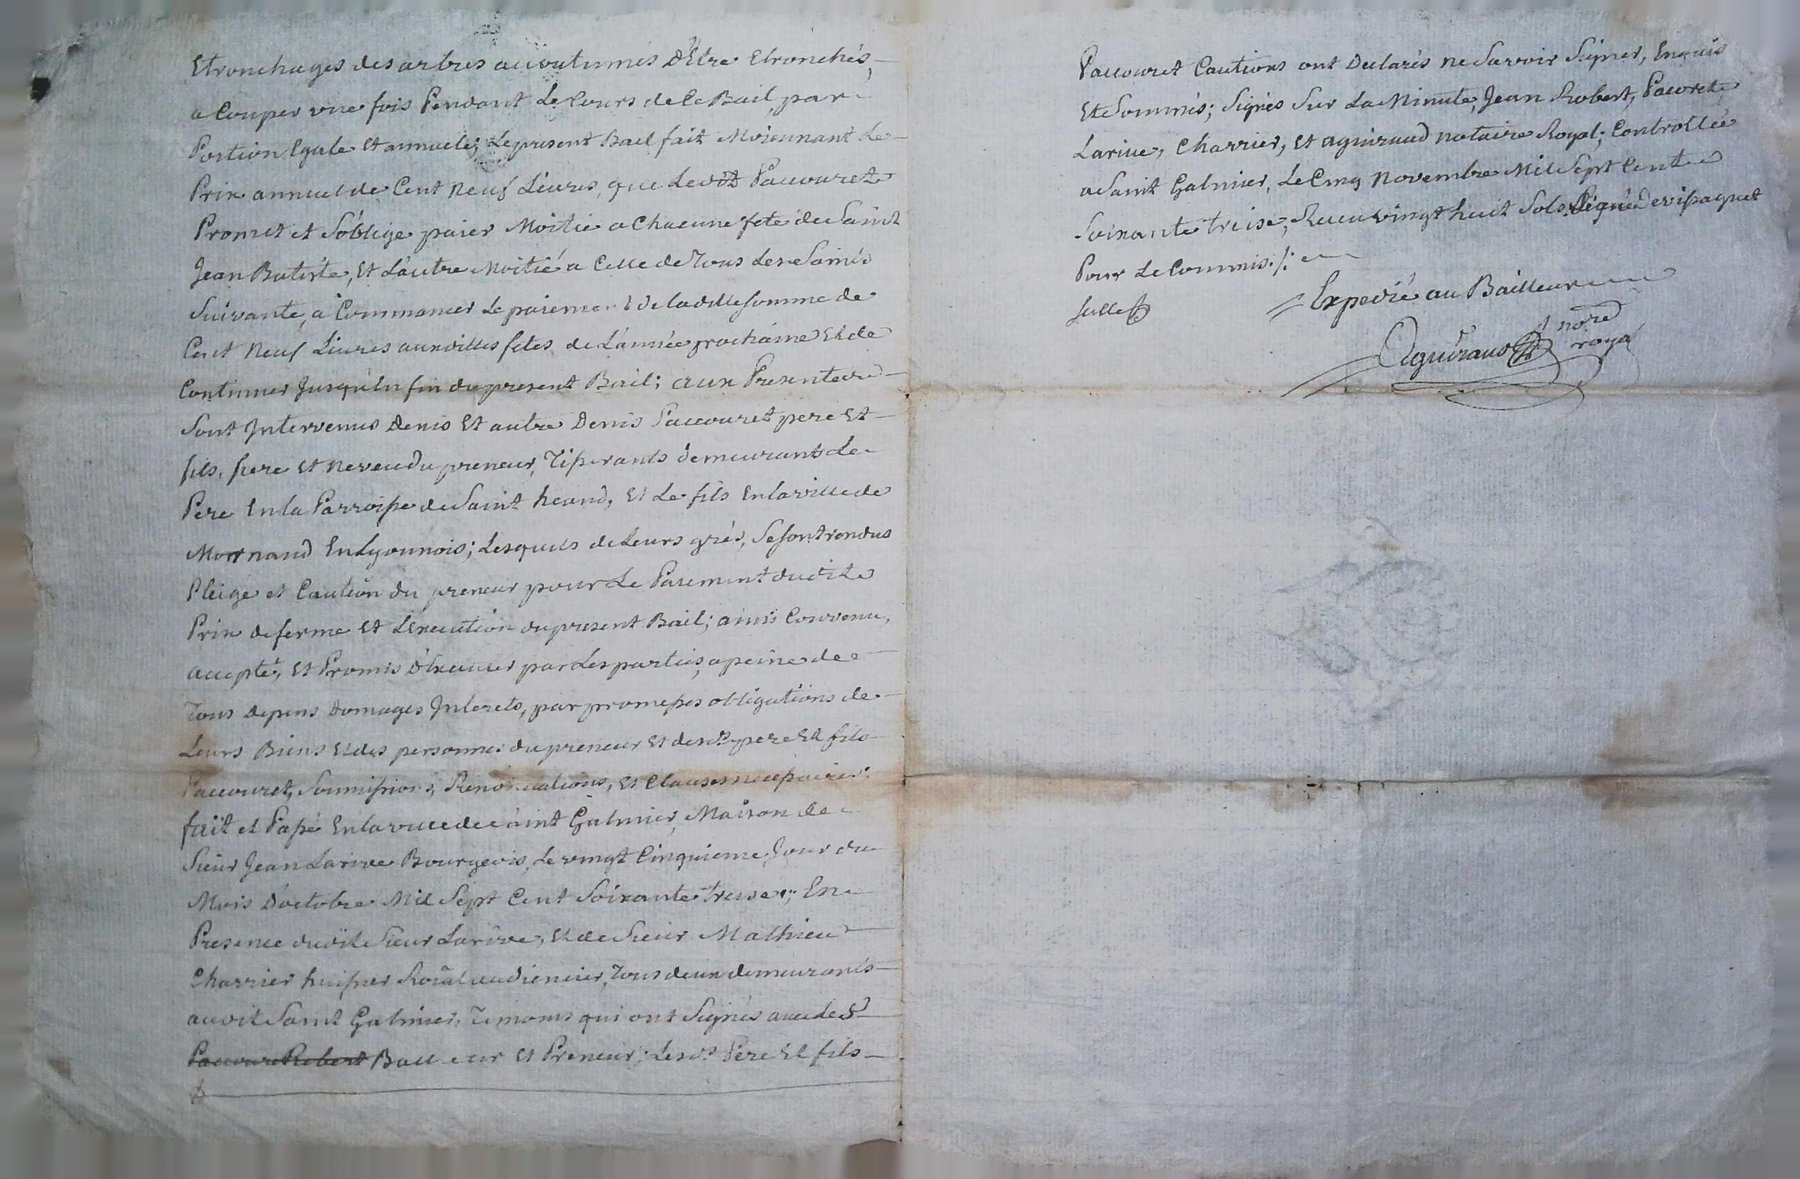 Etronchages des arbres accoutumés D'Etre Etronchés,
a Couper une fois Pendant Le Cours de Ce Bail, par
Portion Egale Et annuele; Le present Bail fait Moiennant Le
Prix annuel de Cent Neuf Livres, que Ledit Paccouret
Promet et S'oblige paier Moitié a Chacune fete de Saint
Jean Batiste, Et L'autre Moitié a Celle de Tous Les Saints
Suivante, a Commancer Le paiement de ladite somme de
Cent Neuf Livres auxdittes fetes de L'année prochaine Et de
Continuer Jusqu'a la fin du present Bail; aux Presentes
Sont Intervenus Denis Et autre Denis Paccouret pere Et
fils, frere et Neveu du preneur, Tisserants demeurants Le
Pere En la Parroisse de Saint heand, Et Le fils En la ville de
Mornand En Lyonnois; Lesquels de Leurs grés, Se sont rendus
Pleige et Caution du preneur pour Le Paiement dudit
Prix de ferme Et L'Execution du present Bail; ainsi Convenu,
accepté, Et Promis D'Executer par Les parties, a peine de
Tous Depens Domages Interets, par promesses obligations de
Leurs Biens Et des personnes du preneur Et desdts pere Et fils
Paccouret, Soumissions, Renonciations, Et Clauses necessaires;
fait et Passé En la ville de Saint Galmier, Maison de
Sieur Jean Larive Bourgeois, Le vingt Cinquieme Jour du
Mois D'octobre Mil Sept Cent Soixante Treise; En
Presence dudit Sieur Larive, Et de Sieur Mathieu
Charrier huissier Roïal audiencier, Tous deux demeurants
audit Saint Galmier, Temoins qui ont Signés avec Lesd
Paccouret Robert Bailleur Et Preneur; Lesdts Pere Et fils
Paccouret Cautions ont Declarés ne Savoir Signer, Enquis
Et Sommés; Signés Sur La Minute, Jean Robert, Pacoret
Larive, Charrier, Et Aguiraud notaire Royal; Controllée
a Saint Galmier, Le Cinq Novembre Mil Sept Cent
Soixante treise, Recu vingt huit Sols Signé
Pour Le Commis ./.
Expedié au Bailleur
Aguiraud nore
royal